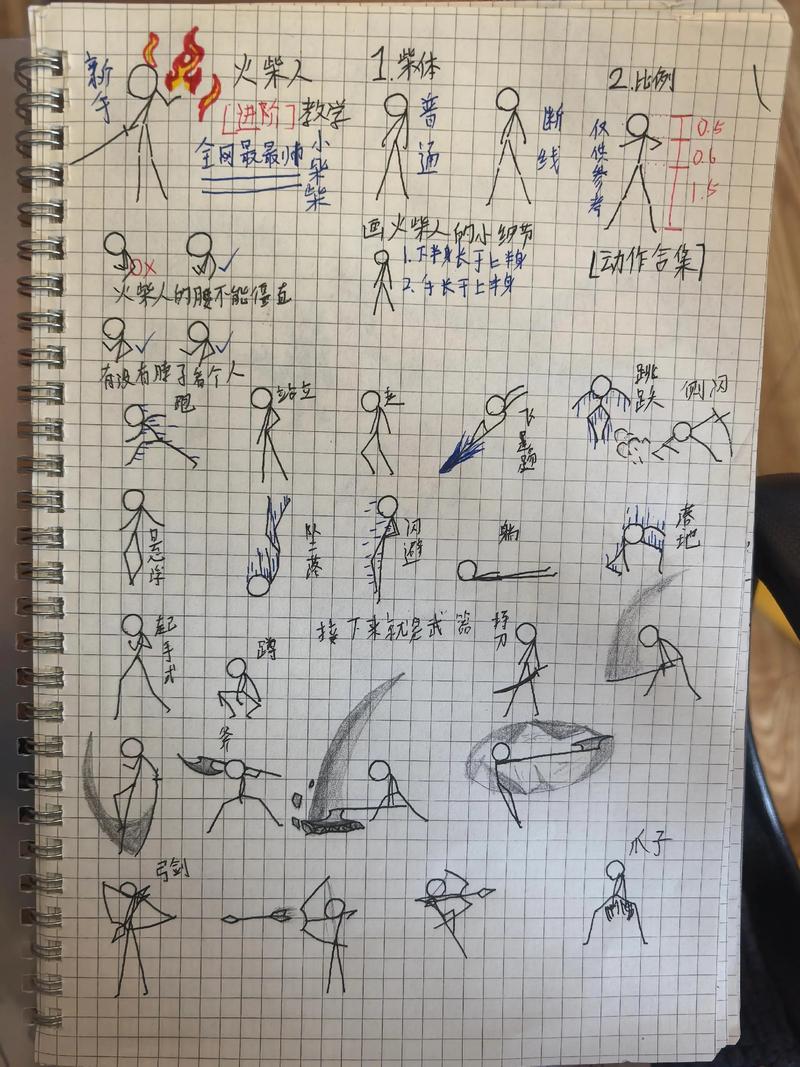 新手
火柴人
[进阶]教学
全网最最帅小柴柴
1.柴体
普通
断线
2.比例
仅供参考
0.5
0.6
1.5
画火柴人的小细节
1.下半身长于上半身
2.手长于上半身
[动作合集]
火柴人的腰不能僵直
有没有脖子看个人
跑
站立
走
飞
跳跃
侧闪
悬浮
坠落
闪避
躺
落地
起手式
蹲
接下来就是武器
持刀
斧
弓剑
爪子